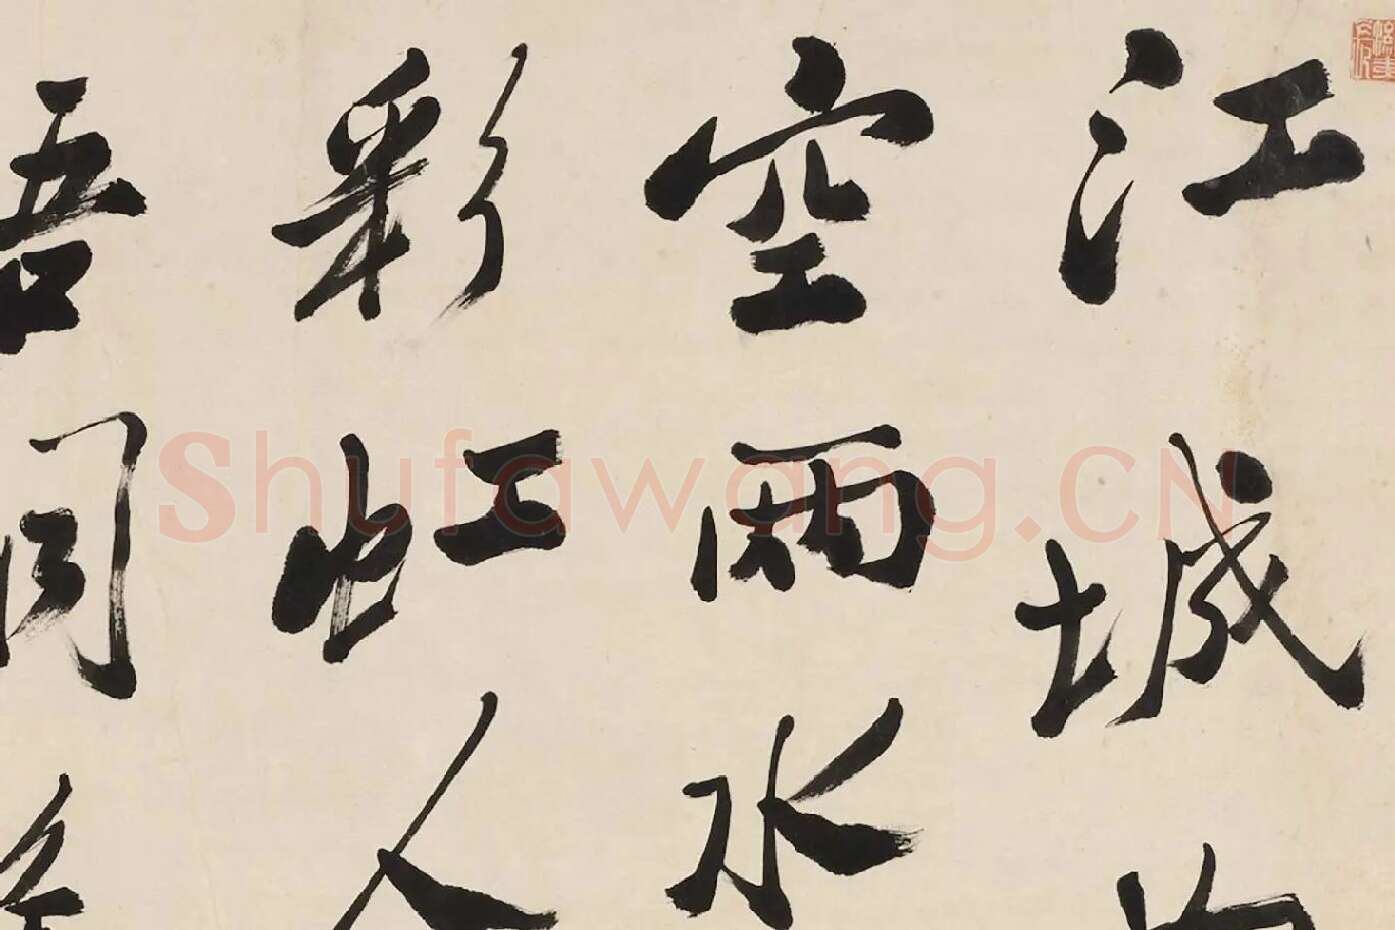 江城
空兩水
彩虹人
吾同
Shufawang.CN